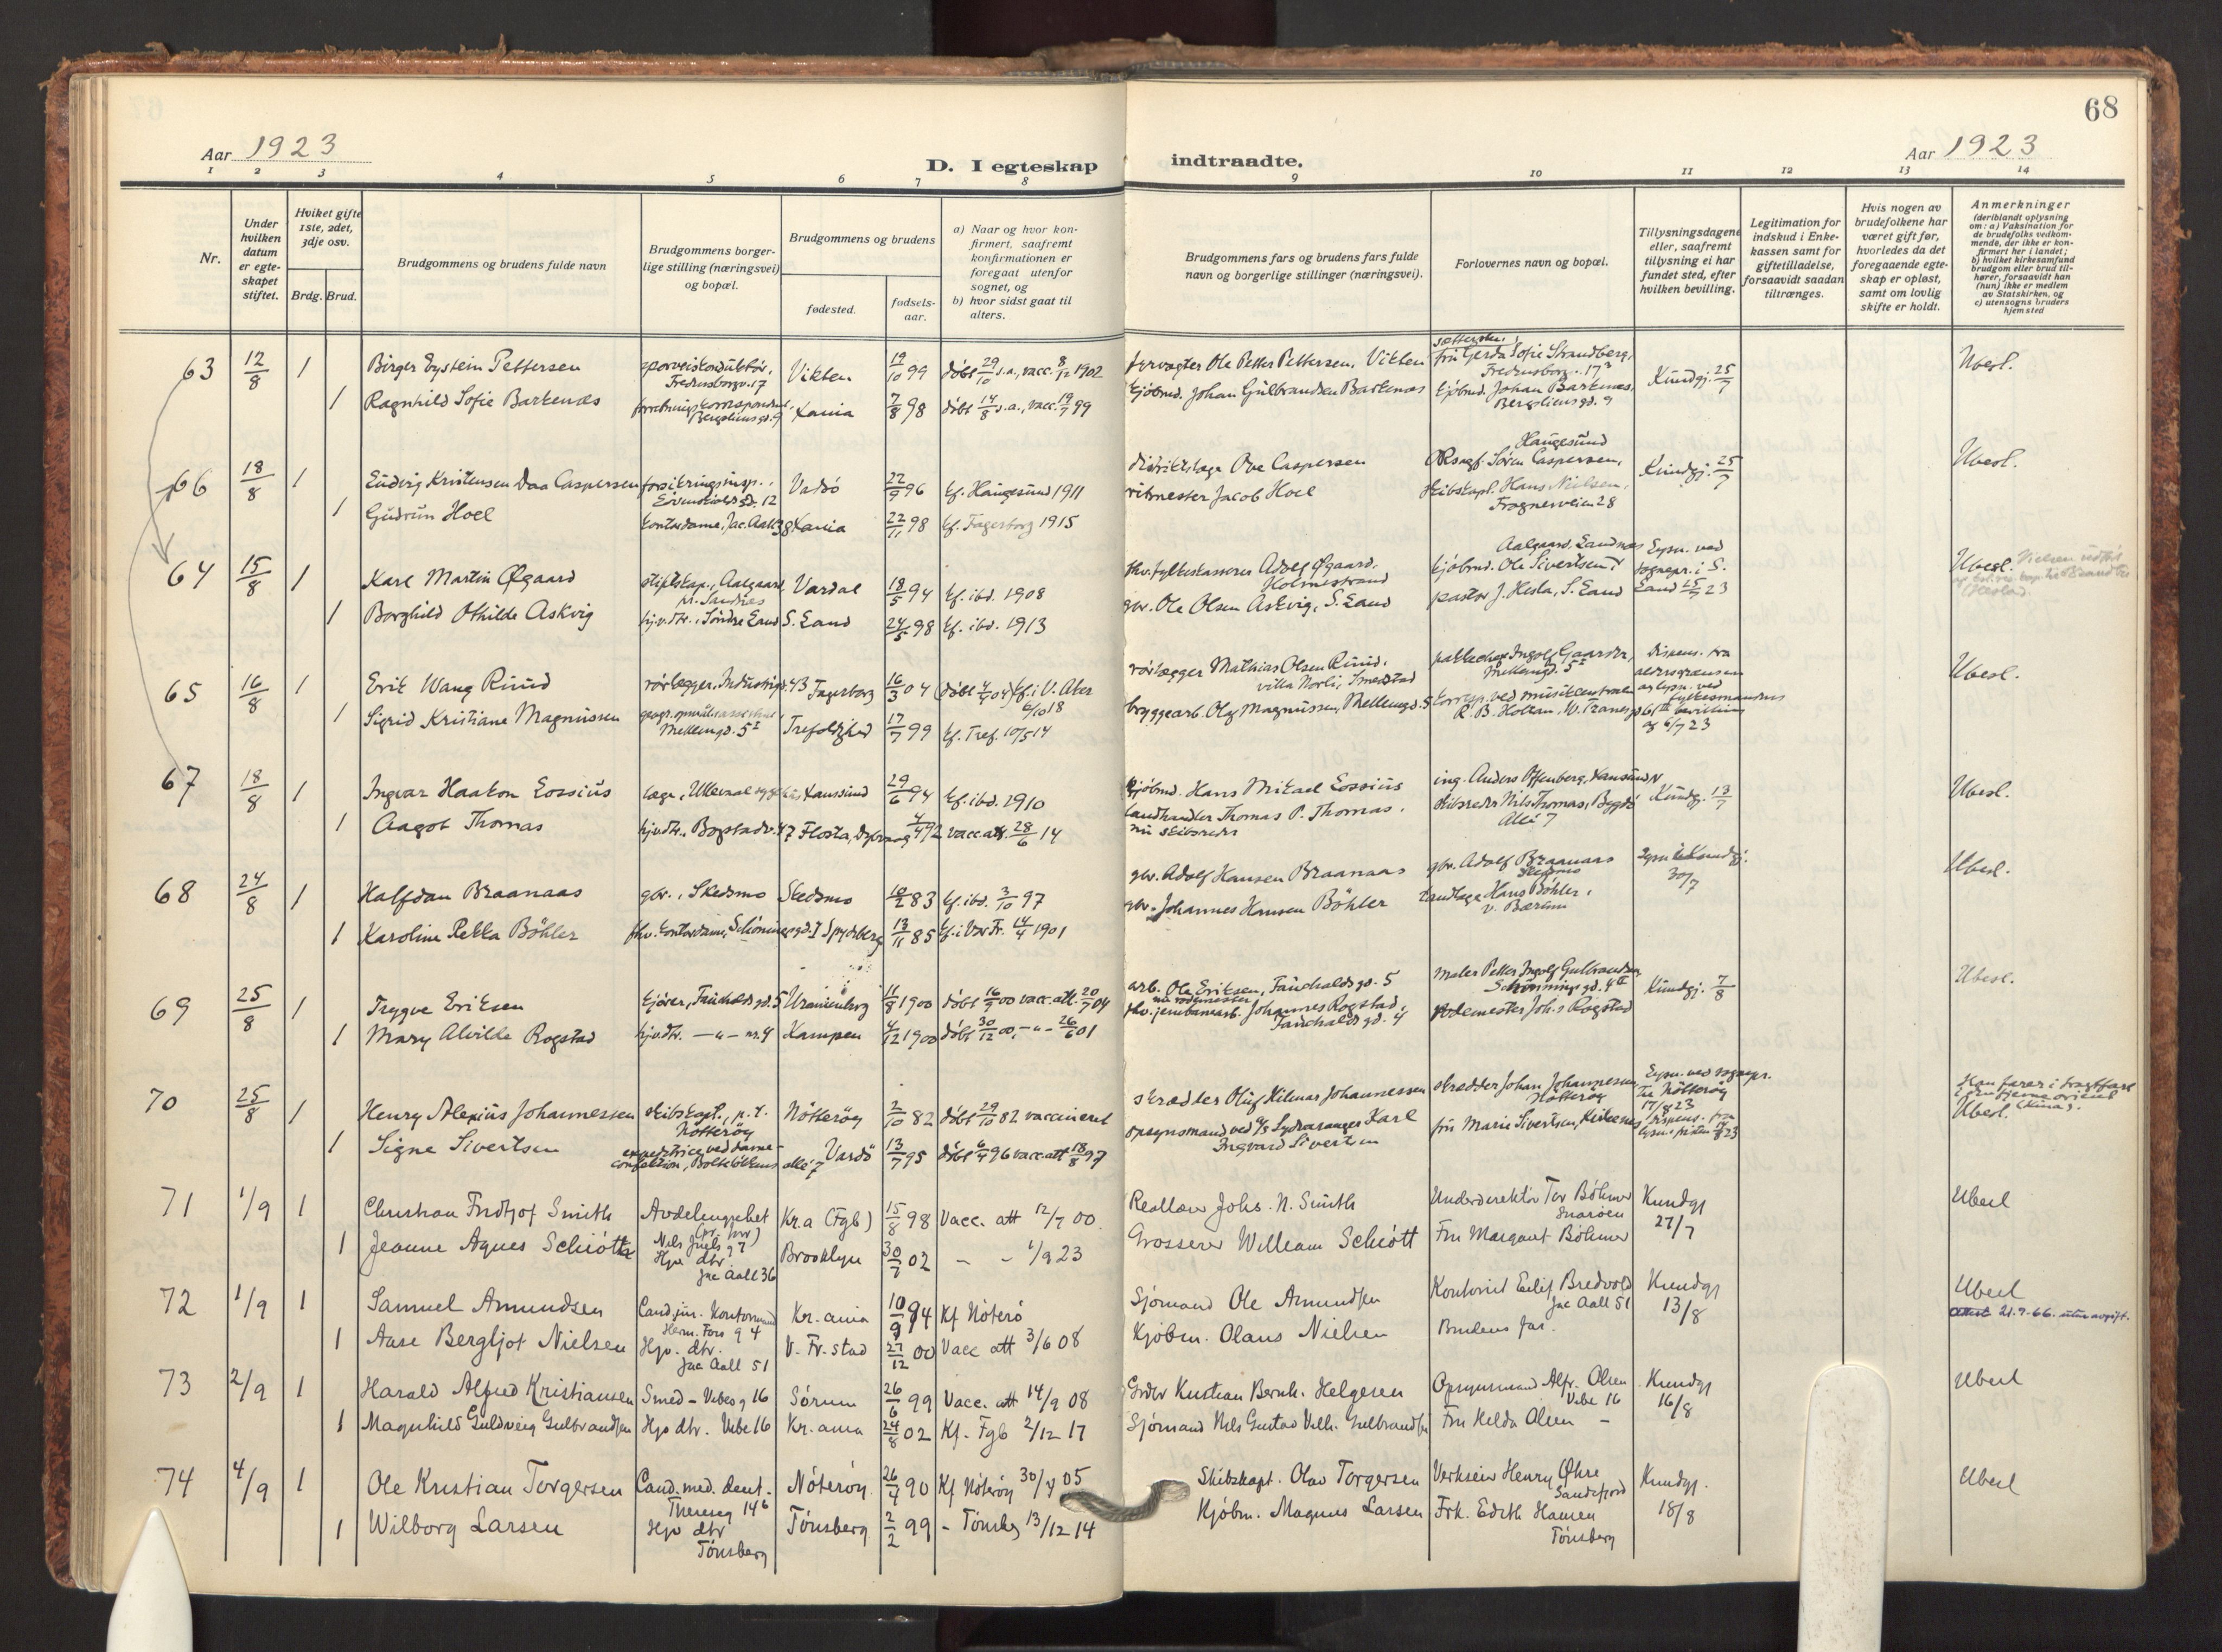 68
Aar 1923
D. I egteskap indtraadte.
Aar 1923
1 2 3 4 5 6 7 8 9 10 11 12 13 14
Nr.
Under hvilken datum er egteskapet stiftet.
Hviket gifte 1ste, 2det, 3dje osv.
Brdg. Brud.
Brudgommens og brudens fulde navn
Brudgommens borgerlige stilling (næringsvei) og bopæl.
Brudgommens og brudens
fødested.
fødselsaar.
a) Naar og hvor konfirmert, saafremt konfirmationen er foregaat utenfor sognet, og
b) hvor sidst gaat til alters.
Brudgommens fars og brudens fars fulde navn og borgerlige stillinger (næringsvei).
Forlovernes navn og bopæl.
Tillysningsdagene eller, saafremt tillysning ei har fundet sted, efter hvilken bevilling.
Legitimation for indskud i Enkekassen samt for giftetilladelse, forsaavidt saadan tiltrænges.
Hvis nogen av brudefolkene har været gift før, hvorledes da det foregaaende egteskap er opløst, samt om lovlig skifte er holdt.
Anmerkninger
(deriblandt oplysning om: a) Vaksination for de brudefolks vedkommende, der ikke er konfirmert her i landet; b) hvilket kirkesamfund brudgom eller brud tilhører, forsaavidt han (hun) ikke er medlem av Statskirken, og c) utensogns bruders hjemsted
63 12/8 1 Birger Eystein Pettersen sporveiskonduktør, Fredensborgv. 17 Vikten 19/10 99 døbt 29/10 s.a., vacc. 8/12 1902 fyrvogter Ole Petter Pettersen, Vikten fru Gerda Sofie Strandberg, Fredensborgv. 17 Kundgj. 25/7 Ubesl.
1 Ragnhild Sofie Barkenæs Bergsliensgd. 9 Xania 7/8 98 døbt 14/8 s.a., vacc. 19/7 99 kjøbmd. Johan Gulbrandsen Barkenæs kjøbmd. Johan Barkenæs, Bergsliensgd. 9
66 18/8 1 Ludvig Kristensen Daa Caspersen forsikringsinsp., 12 Vadsö 22/9 96 kf. Haugesund 1911 distriktslæge Ove Caspersen Søren Caspersen, Haugesund Kundgj. 25/7 Ubesl.
1 Gudrun Hoel kontordame, Jac. Aall 38 Xania 22/11 98 kf. Fagerborg 1915 ritmester Jacob Hoel skibskapt. Hans Nielsen, Frognerveien 28
64 15/8 1 Karl Martin Øgaard Aalgaard pr. Sandnes Vardal 18/5 94 kf. ibd. 1908 fhv. fylkeskasserer Adolf Øgaard, Holmestrand kjøbmd. Ole Sivertsen Lysn. ved sognepr. i S. Land 25/7 23 Ubesl.
1 Borghild Othilde Askvig hjv. dtr., Söndre Land S. Land 24/5 98 kf. ibd. 1913 gbr. Ole Olsen Askvig, S. Land pastor J. Hesla, S. Land
65 16/8 1 Erik Wang Ruud rörlægger, Industrigt. 43 Fagerborg 16/3 04 (døbt 4/4 04) kf. i V. Aker 6/10 18 rörlægger Mathias Olsen Ruud, villa Norli, Smestad Ingolf Gaarder, Mellemgd. 5 Dispens. fra aldersgrænsen Ubesl.
1 Sigrid Kristiane Magnussen Mellemgd. 5 I Trefoldighed 17/7 99 kf. Tref. 10/5 14 bryggearb. Olaf Magnussen, Mellemgd. 5 af 6/7 23
67 18/8 1 Ingvar Haakon Lossius læge, Ullevaal Xansund 29/6 94 kf. ibd. 1910 kjøbmd. Hans Mikael Lossius ing. Anders Offenberg, Xansund N Kundgj. 13/7 Ubesl.
1 Aagot Thomas hjv. dtr., Bogstadv. 47 Flosta, Dypvaag 4/4 92 vacc. att. 28/6 14 landhandler Thomas P. Thomas, nu skibsreder skibsreder Nils Thomas, Bygdö Allé 7
68 24/8 1 Halfdan Braanaas gbr., Skedsmo Skedsmo 18/2 83 kf. ibd. 3/10 97 gbr. Adolf Hansen Braanaas gbr. Adolf Braanaas Skedsmo 30/7 Ubesl.
1 Karoline Petra Böhler fhv. kontordame, Schöningsgd. I Spydeberg 13/11 85 kf. i Vor Fr. 14/4 1901 gbr. Johannes Hansen Böhler tandlæge Hans Böhler, V. Bærum
69 25/8 1 Trygve Eriksen kjörer, Fauchaldsgd. 5 Uranienborg 11/8 1900 döbt 16/9 00 vacc. att. 20/7 04 arb. Ole Eriksen, Fauchaldsgd. 5 maler Petter Ingolf Gulbrandsen Schönningsgd. 4 II Kundgj. 7/8 Ubesl.
1 Mary Alvilde Rogstad hjv. dtr. — " — nr. 4 Kampen 4/12 1900 døbt 30/12 00, — " — 26/6 01 fhv. jernbanearb. Johannes Rogstad, Fauchaldsgd. 4 nu rodemester rodemester Johs Rogstad
70 25/8 1 Henry Alexius Johannessen skibskapt., p.t. Nötteröy Nötteröy 2/10 82 döbt 29/10 82 vaccineret skrædder Oluf Hilmar Johannessen skrædder Johan Johannessen, Nötteröy Lysn. ved sognepr. til Nötteröy 17/8 23 Ubesl.
1 Signe Sivertsen expeditrice ved dameconfektion, Bolteløkkens allé 7 Vardö 13/7 95 döbt 6/4 96 vacc. att 18/8 97 opsynsmand ved A/S Sydvaranger Karl Ingvard Sivertsen fru Marie Sivertsen, Kirkenes
71 1/9 1 Christian Fridtjof Smith Avdelingschef Nils Juels g 7 Kr.a (Fgb) 15/8 98 Vacc. att 12/7 00. Reallærer Johs. N. Smith Underdirektör Tor Böhmer Snaröen Kundgj 27/7 Ubesl
1 Jeanne Agnes Schiøtt Hjv dtr Jac Aall 36 Brooklyn 30/7 02 – – 1/9 23 Grosserer William Schiøtt Fru Margaret Böhmer
72 1/9 1 Samuel Amundsen Cand jur. Herm. Foss g 4 Kr.ania 10/9 94 Kf Nöterö Sjømand Ole Amundsen Kontorist Eilif Bredvold Jac Aall 51 Kundgj 13/8 Ubesl
21.9.66. uten avgift.
1 Aase Bergljot Nielsen Hjv. dtr. Jac Aall 51 V. Fr. stad 27/12 00 Vacc att 3/6 08 Kjøbm. Olaus Nielsen Brudens far.
73 2/9 1 Harald Alfred Kristiansen Smed – Vibesg 16 Sörum 26/6 99 Vacc. att 14/9 08 Kristian Bernh. Helgesen Opsynsmand Alfr. Olsen Vibe 16 Kundgj 16/8 Ubesl
1 Magnhild Guldveig Gulbrandsen Hjv dtr. Vibe 16 Kr.ania 24/8 02 Kf. Fgb 2/12 17 Sjømand Nils Gustav Vilh. Gulbrandsen Fru Helda Olsen –
74 4/9 1 Ole Kristian Torgersen Cand. med. dent. Thereseg 14 b Nöteröy 26/4 90 Kf Nöteröy 30/4 05 Skibskapt. Olav Torgersen Verkseier Henry Øhre Sandefjord Kundgj. 18/8 Ubesl
1 Wilborg Larsen Hjv dtr Tönsberg Tönsberg 2/2 99 – Tönsbg 13/12 14 Kjøbm. Magnus Larsen Frk. Edith Hansen Tönsberg